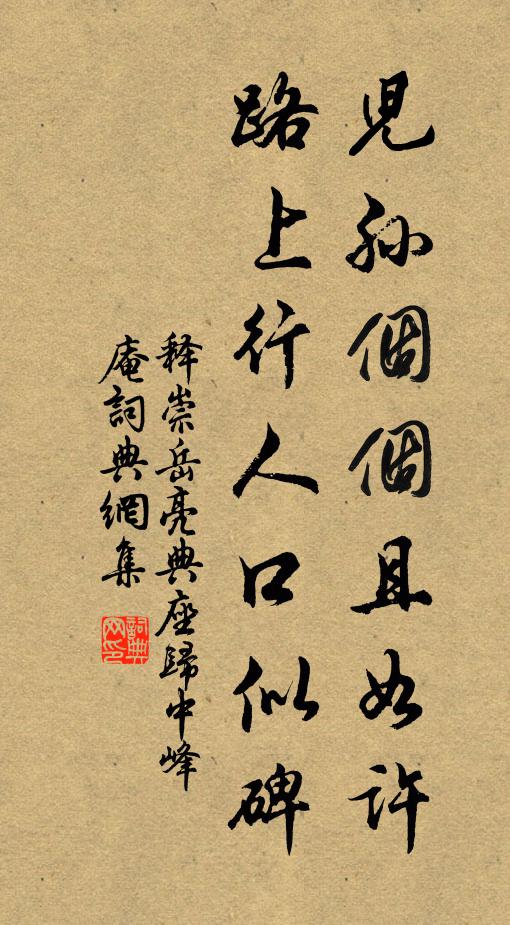 兒孫個個且如許
路上行人口似碑
釋崇岳亮典座歸中峰
庵詞典網集
詞典
网印